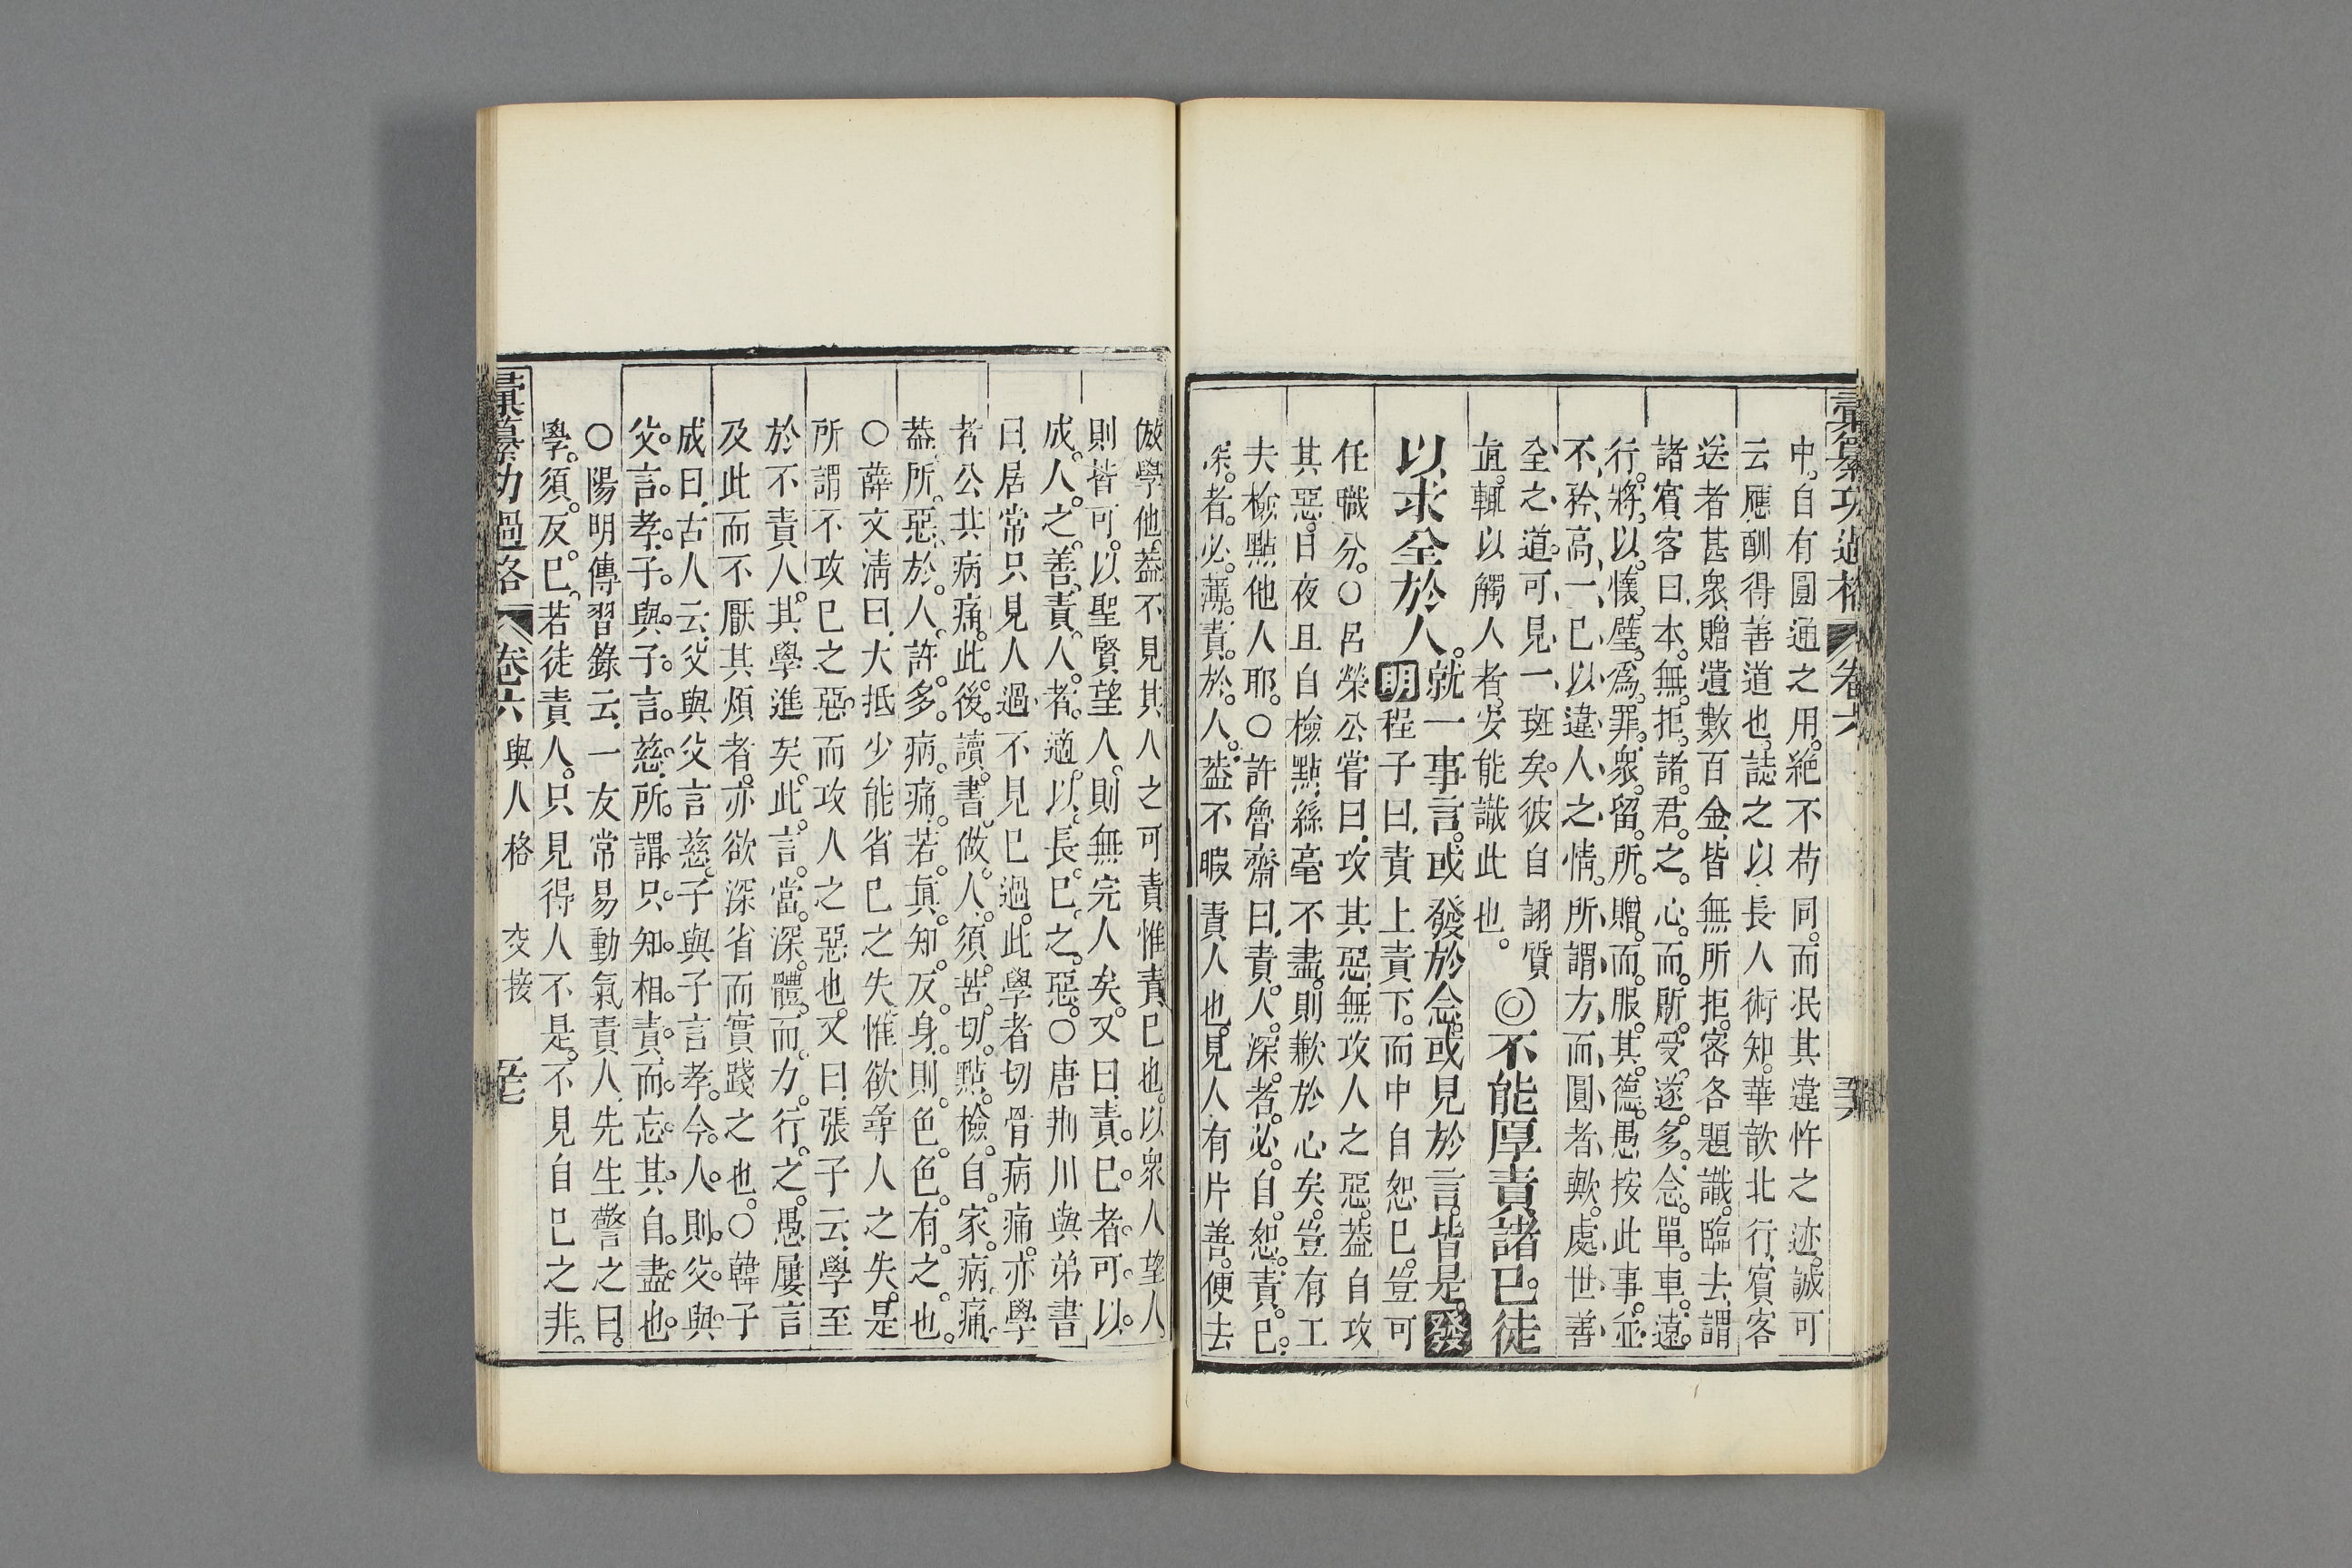 彙纂功過格 卷六
中自有圓通之用絕不苟同而泯其違忤之迹誠可
云應酬得善道也誌之以長人術知華歆北行賓客
送者甚衆贈遺數百金皆無所拒密各題識臨去謂
諸賓客曰本無拒諸君之心而所受遂多念單車遠
行將以懷璧爲罪衆留所贈而服其德愚按此事並
不矜高一已以違人之情所謂方而圓者歟處世善
全之道可見一斑矣彼自詡質
直輒以觸人者安能識此也
◎不能厚責諸已徒
以求全於人就一事言或發於念或見於言皆是發
明程子曰責上責下而中自恕已豈可
任職分○呂榮公嘗曰攻其惡無攻人之惡葢自攻
其惡日夜且自檢點絲毫不盡則歉於心矣豈有工
夫檢點他人耶○許魯齋曰責人深者必自恕責已
深者必薄責於人葢不暇責人也見人有片善便去
倣學他葢不見其人之可責惟責已也以衆人望人
則皆可以聖賢望人則無完人矣又曰責已者可以
成人之善責人者適以長已之惡○唐荆川與弟書
曰居常只見人過不見已過此學者切骨病痛亦學
者公共病痛此後讀書做人須苦切點檢自家病痛
葢所惡於人許多病痛若眞知反身則色色有之也
○薛文淸曰大抵少能省已之失惟欲尋人之失是
所謂不攻已之惡而攻人之惡也又曰張子云學至
於不責人其學進矣此言當深體而力行之愚屢言
及此而不厭其煩者亦欲深省而實踐之也○韓子
成曰古人云父與父言慈子與子言孝今人則父與
父言孝子與子言慈所謂只知相責而忘其自盡也
○陽明傳習錄云一友常易動氣責人先生警之曰
學須反已若徒責人只見得人不是不見自已之非
彙纂功過格 卷六 與人格 交接